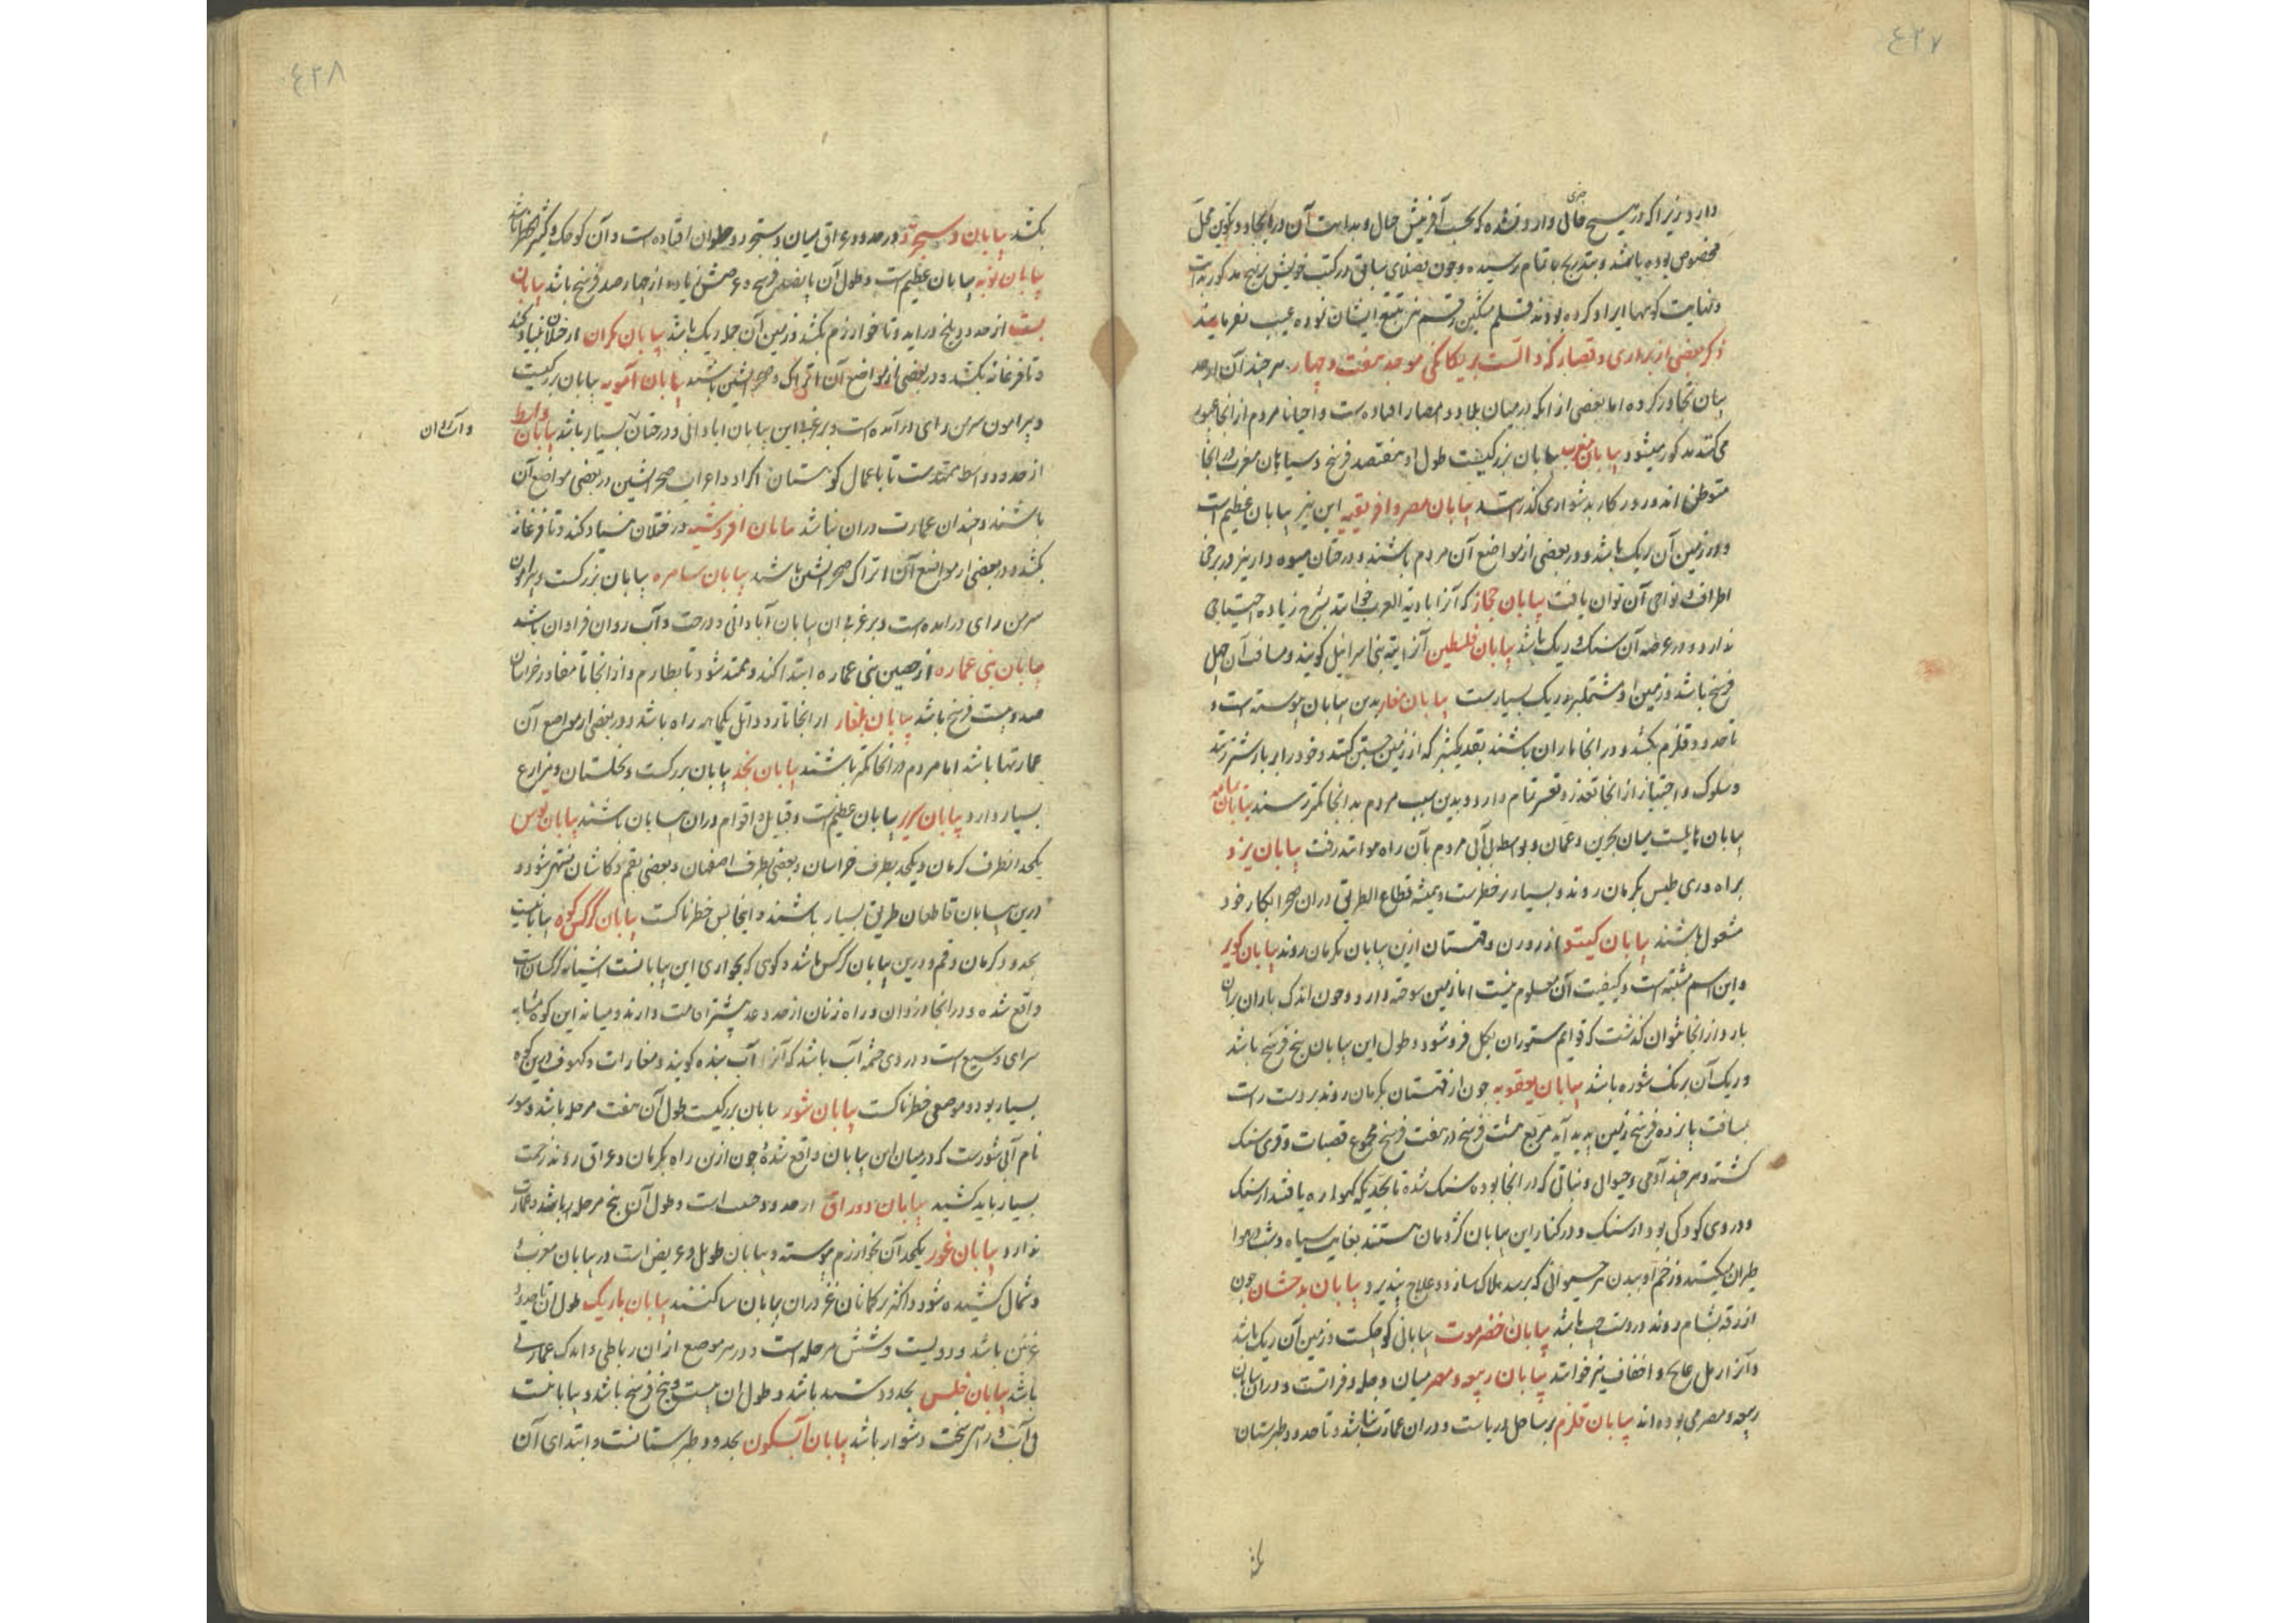 ٤٢٧
دارد زیرا که در هیچ حالی
مخصوص بوده باشد و بتدریج باتمام رسیده و چون فضلای سابق در کتب خویش برنج مذکور بدایت
و نهایت کوهها ایراد کرده بودند قلم مشکین رقم نیز تتبع ایشان نموده عیب نفرمایند
ذکر بعضی از براری و قصار که دالست بر یکانکی موجد هفت و چهار هر چند آن از حد
بیان تجاوز کرده اما بعضی از آنکه در میان بلاد و امصار افتاده است و احیانا مردم از آنجا عبور
می کنند مذکور میشود بیابان مغرب بیابان بزرکیست طول او هفتصد فرسخ و سیاهان مغرب در آنجا
متوطن اند و روزکار بدشواری گذرانند بیابان مصر و افریقیه این نیز بیابان عظیم است
و در زمین آن ریک باشد و در بعضی از مواضع آن مردم باشند و درختان میوه دار نیز در برخی
اطراف و نواحی آن توان یافت بیابان حجاز که آنرا بادیة العرب خوانند بشرح زیاده احتیاجی
ندارد و در عرصه آن سنک و ریک باشد بیابان فلسطین آنرا تیه بنی اسرائیل کویند و مسافت آن چهل
فرسخ باشد و زمین او مشتمل بر ریک بسیارست بیابان مغار بدین بیابان پیوسته است و
تا حدود قلزم بکشد و در آنجا ماران باشند بقد یکشبر که از زمین جستن کنند و خود را بر بار شتر زنند
و سلوک و اجتیاز از آنجا تعذر و تعسر تمام دارد و بدین سبب مردم بدانجا کمتر رسند بیابان یمامه
بیابان هایلیست میان بحرین و عمان و بواسطه بی آبی مردم بآن راه نتوانند رفت بیابان یزد
براه وری طبس بکرمان روند و بسیار پرخطرست و همیشه قطاع الطریق در آن صحرا بکار خود
مشغول باشند بیابان کیتو از زورن و قهستان ازین بیابان بکرمان روند بیابان کویر
و این اسم مشتبه است و کیفیت آن معلوم نیست اما زمین سوخته دارد و چون اندک باران بران
بارد از آنجا نتوان گذشت که قوایم ستوران بکل فرو شود و طول این بیابان پنج فرسخ باشد
و ریک آن برنک شوره باشد بیابان یعقوبه چون از قهستان بکرمان روند بر دست راست
بمسافت پانزده فرسخ زمین پدید آید مربع هشت فرسخ در هفت فرسخ مجموع قصبات و قری سنک
کشته و هر چند آدمی و حیوان و نباتی که در آنجا بوده سنک شده تا بحدیکه کهواره یافتند از سنک
و در وی کودکی بود از سنک و در کنار این بیابان کژدمان هستند بغایت سیاه و بشب در هوا
طیران میکنند و زخم او ببدن هر حیوانی که برسد هلاک سازد و علاج نپذیرد بیابان بدخشان چون
از رقه بشام روند در دست چپ باشد بیابان حضرموت بیابانی کوچکست و زمین آن ریک باشد
و آنرا رمل عالج و احقاف نیز خوانند بیابان ربیعه و مضر میان دجله و فراتست و دران بیابان
ربیعه و مضر می بوده اند بیابان قلزم بر ساحل دریاست و دران عمارت نباشد و تا حدود طبرستان
٤٢٨
بکشد بیابان دسبجرد در حدود عراق میان دستجرد و حلوان افتاده است و آن کوچک و کثیر الخطر باشد
بیابان نوبه بیابان عظیم است و طول آن پانصد فرسخ و عرضش زیاده از چهارصد فرسخ باشد بیابان
بست از حدود بلخ درآید و تا خوارزم بکشد و زمین آن جمله ریک باشد بیابان مکران از ختلان بنیاد کند
و تا فرغانه بکشد و در بعضی از مواضع آن اتراک و صحرانشین باشند بیابان آمویه بیابان بزرکیست
و پیرامون سرمن رای درآمده است و بر غربی این بیابان آبادانی و درختان بسیار باشد بیابان واسط
و آب روان
از حدود واسط ممتدست تا باعمال کوهستان اکراد و اعراب صحرانشین در بعضی مواضع آن
باشند و چندان عمارت دران نباشد بیابان افروشیه در ختلان بنیاد کند و تا فرغانه
بکشد و در بعضی از مواضع آن اتراک صحرانشین باشند بیابان سامره بیابان بزرکست و پیرامون
سرمن رای درآمده است و بر غربی آن بیابان آبادانی و درخت و آب روان فراوان باشد
بیابان بنی عماره از حصین بنی عماره ابتدا کند و ممتد شود تا بطارم و از آنجا تا مفاوز خراسان
صد و بیست فرسخ باشد بیابان بلغار از آنجا تا رود اتل یکماهه راه باشد و در بعضی از مواضع آن
عمارتها باشد اما مردم در آنجا کمتر باشند بیابان نجد بیابان بزرکست و نخلستان و مزارع
بسیار دارد بیابان سریر بیابان عظیم است و قبایل و اقوام دران بیابان باشند بیابان
یکحد از طرف کرمان و یکحد بطرف خراسان و بعضی بطرف اصفهان و بعضی بقم و کاشان منتهی شود و
درین بیابان قاطعان طریق بسیار باشند و اینجا بس خطرناکست بیابان کرکس کوه بیابانیست
بحدود کرمان و قم و درین بیابان کرکس باشد و کوهی که بحوالی این بیابانست آشیانه کرکسان است
واقع شده و در آنجا دزدان و راه زنان از حد و عد بیشتر اقامت دارند و میانه این کوه مشابه
سرای وسیع است و در وی چشمه آب باشد که آنرا آب بنده کویند و مغارات و کهوف درین کوه
بسیار بود و موضعی خطرناکست بیابان شور بیابان بزرکیست طول آن هفت مرحله باشد و شور
نام آبی شورست که در میان این بیابان واقع شده چون ازین راه بکرمان و عراق روند زحمت
بسیار باید کشید بیابان دوراق از حدود است و طول آن پنج مرحله باشد و عمارت
ندارد بیابان غور یکحد آن بخوارزم پیوسته و بیابان طویل و عریض است در بیابان مغرب
و شمال کشیده شود و اکثر ترکمانان غز دران بیابان ساکنند بیابان باریک طول آن تا حدود
غزنین باشد و دویست و شش مرحله است و در هر موضع از آن رباطی و اندک عمارتی
باشد بیابان خلس بحدود باشد و طول آن بیست و پنج فرسخ باشد و بیابانیست
بی آب و راهش سخت دشوار باشد بیابان آبسکون بحدود طبرستانست و ابتدای آن